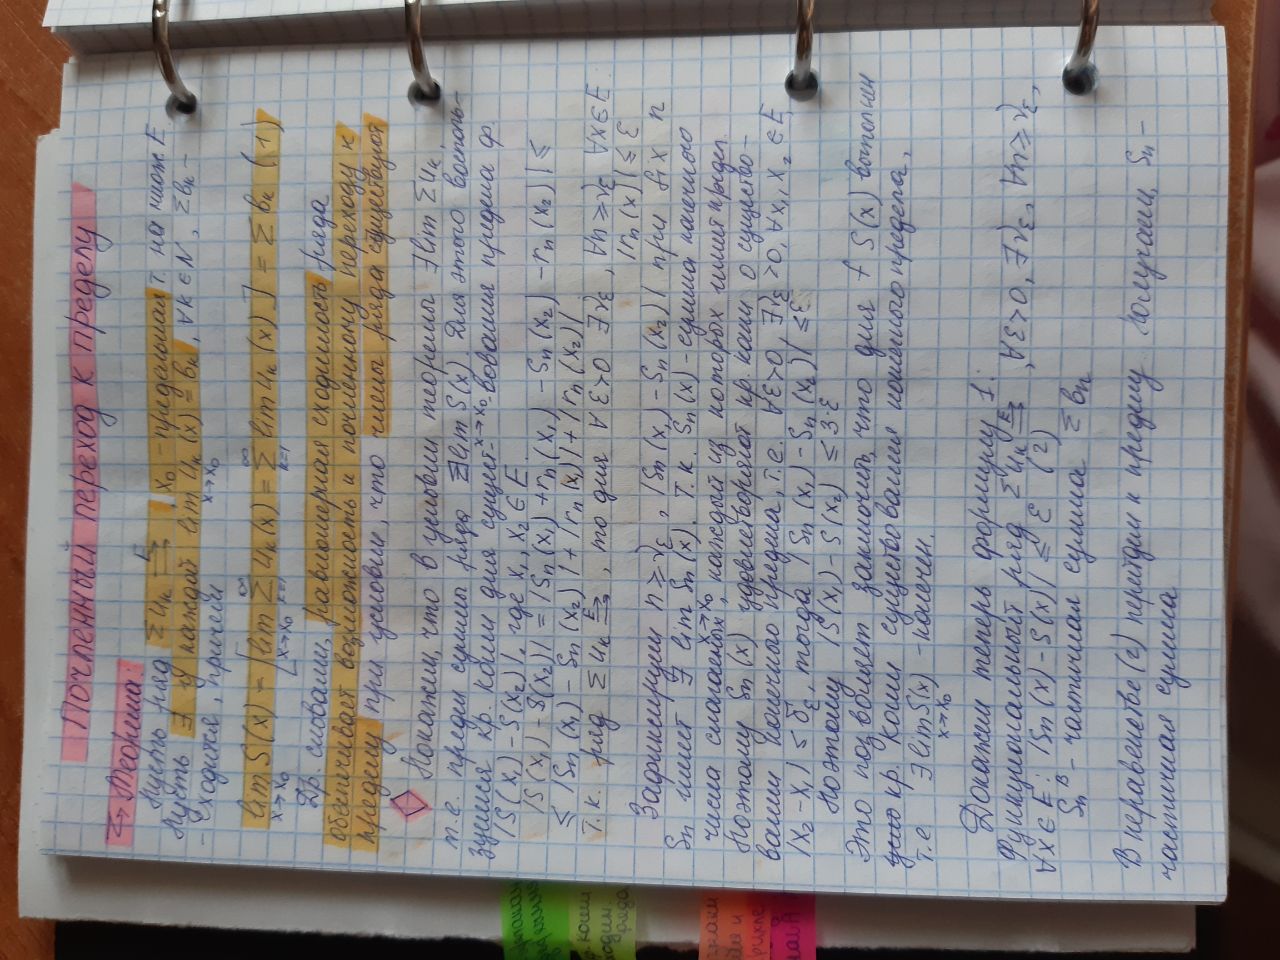 Почленный переход к пределу
Теорема:
Пусть ряд Σ uₖ ⇉ᴱ, x₀ - предельная т. на множ. E
Пусть ∃ у каждой lim uₖ(x) = bₖ, ∀k ∈ N, Σbₖ -
x→x₀
- сходится, причем
lim S(x) = [lim Σ uₖ(x) = Σ lim uₖ(x)] = Σ bₖ (1)
x→x₀ x→x₀ k=1 ∞ k=1 ∞
Др. словами, равномерная сходимость ряда
обеспечивает возможность к почленному переходу к
пределу при условии, что члены ряда существуют
Покажем, что в условии теоремы ∃ lim Σuₖ,
т.е. предел суммы ряда ∃ lim S(x). Для этого восполь-
x→x₀
зуемся кр. Коши для сущест- -вования предела ф.
|S(x₁) - S(x₂)|, где x₁, x₂ ∈ E.
|S(x₁) - S(x₂)| = |Sₙ(x₁) + rₙ(x₁) - Sₙ(x₂) - rₙ(x₂)| ≤
≤ |Sₙ(x₁) - Sₙ(x₂)| + |rₙ(x₁)| + |rₙ(x₂)|
Т.к. ряд Σ uₖ ⇉ᴱ, то для ∀ε>0 ∃ν_ε, ∀n≥ν_ε ∀x∈E
|rₙ(x)| ≤ ε
Зафиксируем n ≥ ν_ε, |Sₙ(x₁) - Sₙ(x₂)| при fix n
Sₙ имеет ∃ lim Sₙ(x). Т.к. Sₙ(x) - сумма конечного
x→x₀
числа слагаемых, каждый из которых имеет предел.
Поэтому Sₙ(x) удовлетворяют кр. коши о существо-
вании конечного предела, т.е. ∀ε>0, ∃ν_ε>0, ∀x₁, x₂ ∈ E
|x₂ - x₁| ≤ δ_ε, тогда |Sₙ(x₁) - Sₙ(x₂)| ≤ ε
Поэтому |S(x₁) - S(x₂) ≤ 3·ε
Это позволяет заключить, что для f S(x) выполнен
кр. Коши существования конечного предела,
т.е ∃ lim S(x) - конечен.
x→x₀
Докажем теперь формулу 1:
Функциональный ряд Σ uₖ ⇉ᴱ, ∀ε>0, ∃ν_ε, ∀n≥ν_ε,
∀x∈E: |Sₙ(x) - S(x)| ≤ ε (2)
Sₙᴮ - частичная сумма Σ bₙ
В неравенстве (2) перейдем к пределу получаем, Sₙ -
частичная сумма